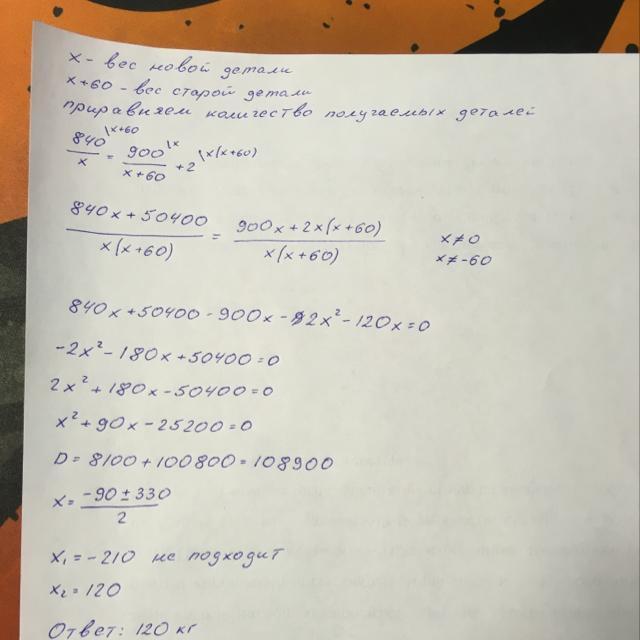 x - вес новой детали
x+60 - вес старой детали
приравняем количество получаемых деталей
840/x \x+60 = 900/(x+60) \x + 2 \x(x+60)
(840x+50400)/(x(x+60)) = (900x+2x(x+60))/(x(x+60)) x≠0
x≠-60
840x+50400-900x-2x²-120x=0
-2x²-180x+50400=0
2x²+180x-50400=0
x²+90x-25200=0
D=8100+100800=108900
x=(-90±330)/2
x₁=-210 не подходит
x₂=120
Ответ: 120 кг